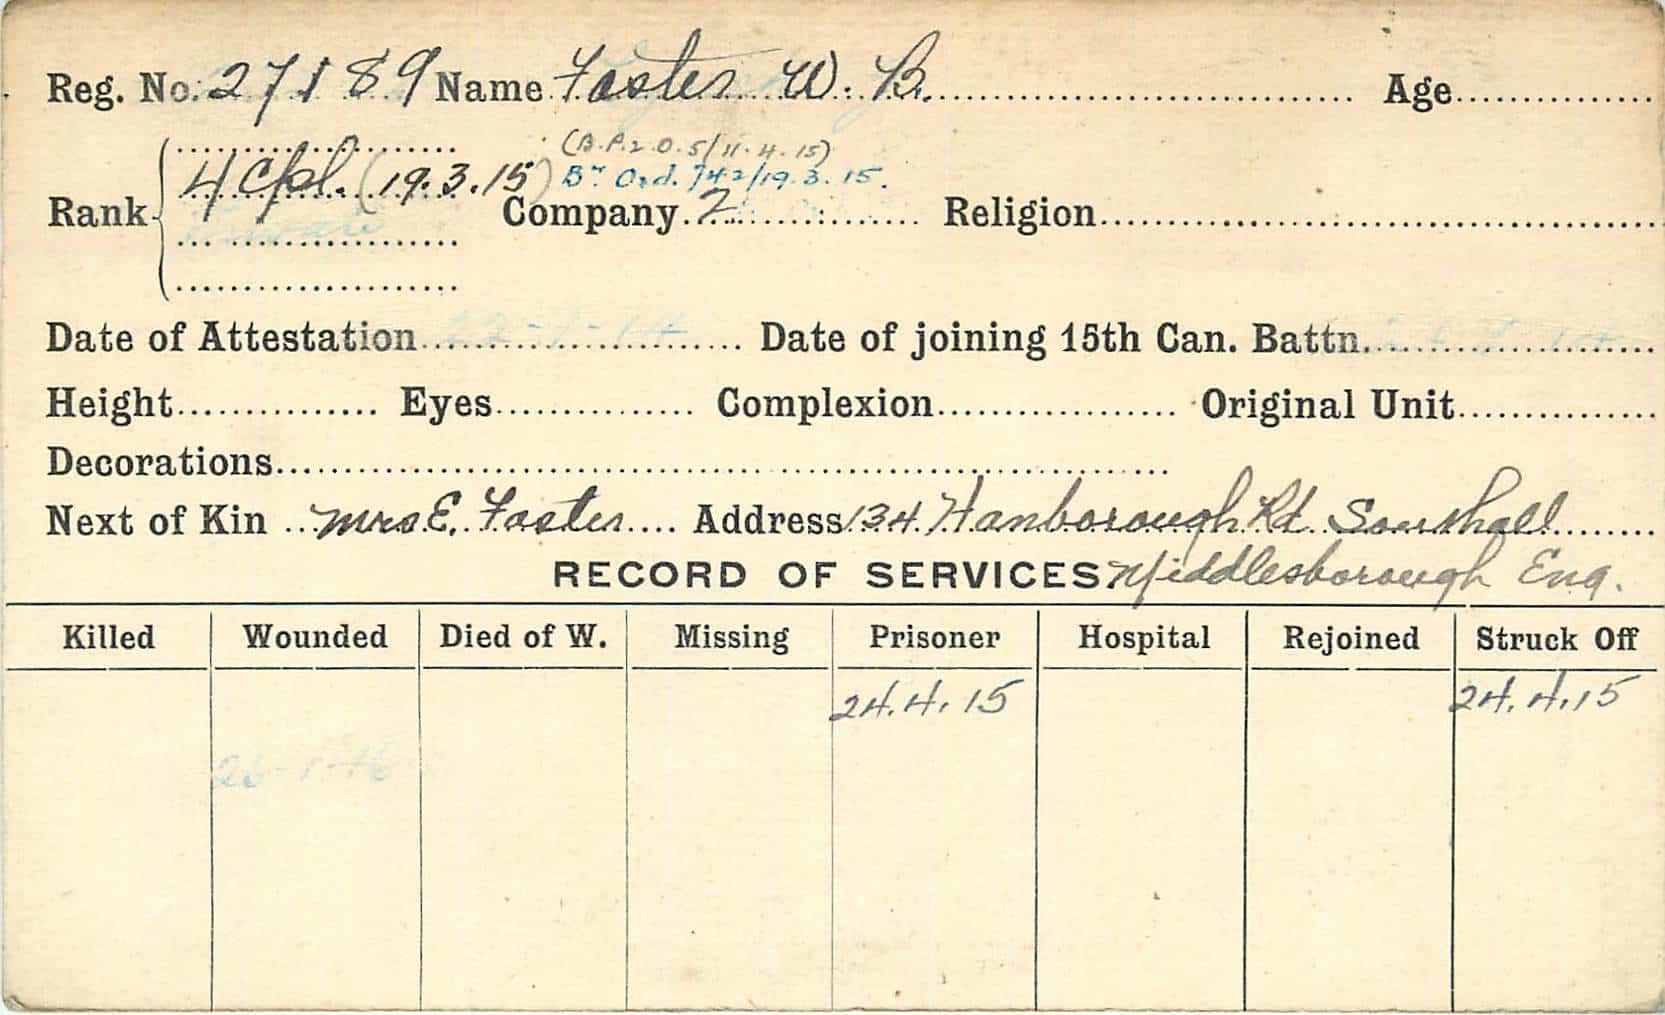 Reg. No. 27189 Name Foster W. B. Age
(B.P.2.O.5/11.4.15)
L/Cpl. (19.3.15) Bn Ord. 742/19.3.15.
Rank Company 2 Religion
Private
Date of Attestation 22-9-14 Date of joining 15th Can. Battn.
Height Eyes Complexion Original Unit
Decorations
Next of Kin Mrs E. Foster Address 134 Hanborough Rd Southall
RECORD OF SERVICES Middlesborough Eng.
Killed Wounded Died of W. Missing Prisoner Hospital Rejoined Struck Off
24.4.15 24.4.15